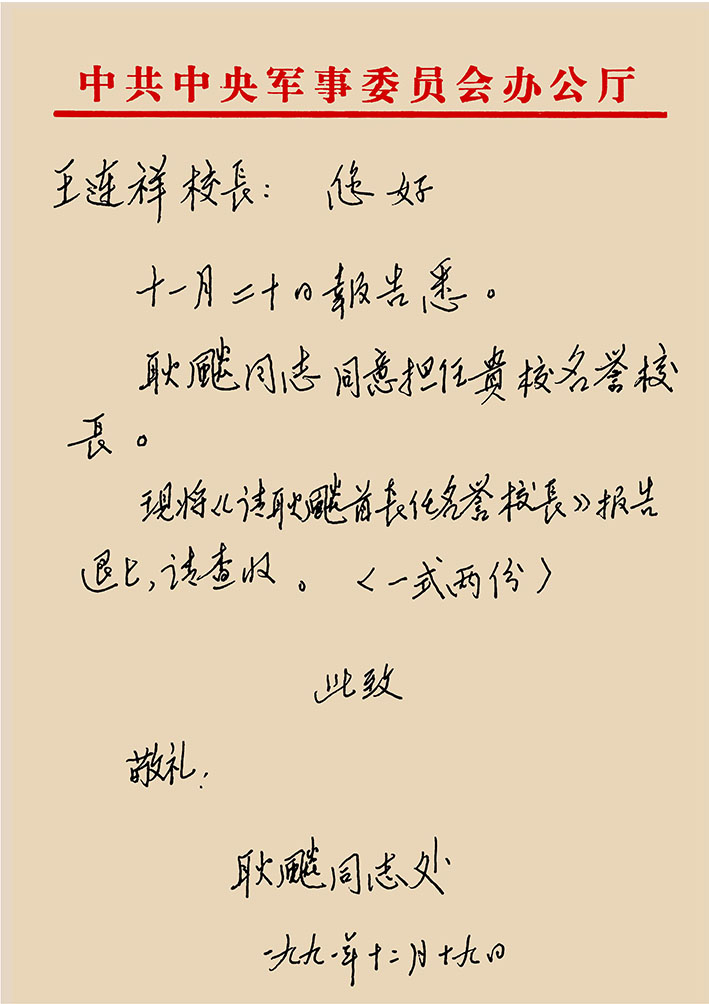 中共中央军事委员会办公厅
王连祥校長： 您好
十一月二十日報告悉。
耿飚同志同意担任貴校名誉校
長。
现将《请耿飚首長任名誉校長》报告
退上，请查收。〈一式两份〉
此致
敬礼！
耿飚同志处
一九九一年十二月十九日